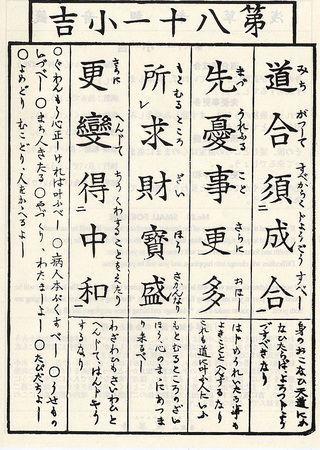 第八十一小吉
道合須成合
みち がつして すべからくじようごうすべし
身のおこなひ天道にか
なひたらばよろづとより
ですべきなり
先憂事更多
まづ うれふる こと さらに おほし
はじめうれいたる事も
よきことにへんずるなり
これも道に叶ふ人にいふ
所求財寶盛
もとむるところ ざい ほう さかんなり
もとむるところのざい
ほう、心のまゝにあつま
り来るべし
更變得中和
さらに へんじて ちうくわすることをえたり
わざわひもさいわひと
へんじてはんじやう
するなり
○ぐわんもう心正しければ叶ふべし ○病人本ぷくすべし ○うせもの
いづべし ○まち人きたる ○やづくり、わたましよし ○たびだちよし
○よめどり むことり、人をかゝへるよし